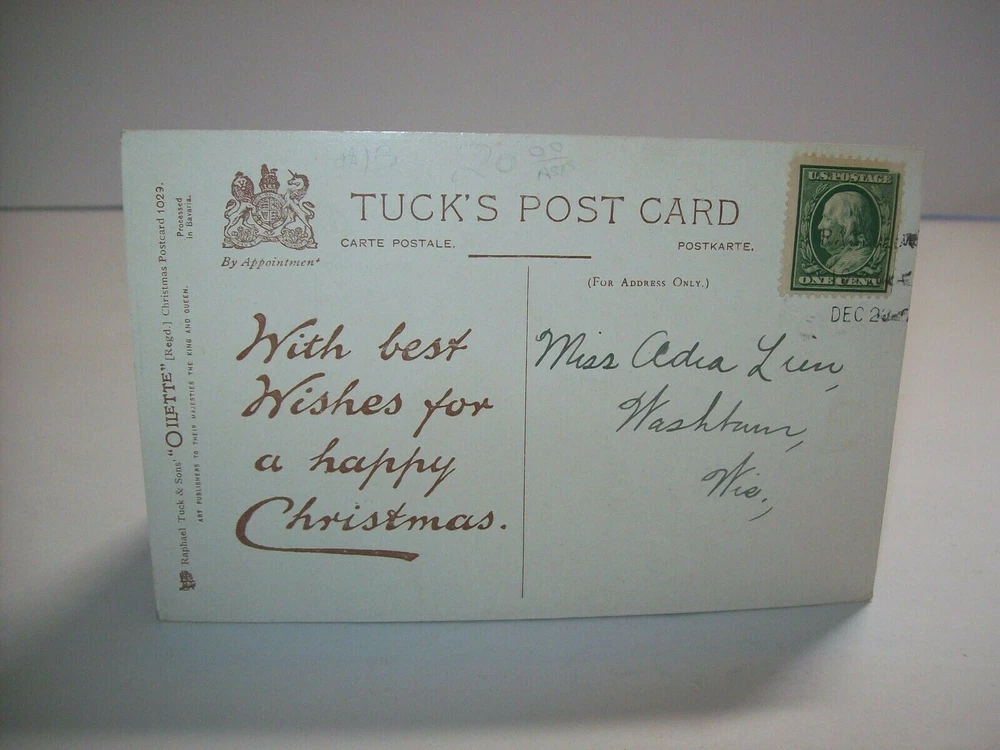 TUCK'S POST CARD
CARTE POSTALE.
POSTKARTE.
By Appointment
(FOR ADDRESS ONLY.)
U.S. POSTAGE
ONE CENT
DEC 2
With best
Wishes for
a happy
Christmas.
Miss Adia Lien,
Washburn,
Wis.,
Raphael Tuck & Sons' "OILETTE" [Regd.] Christmas Postcard 1029.
ART PUBLISHERS TO THEIR MAJESTIES THE KING AND QUEEN.
Processed
in Bavaria.